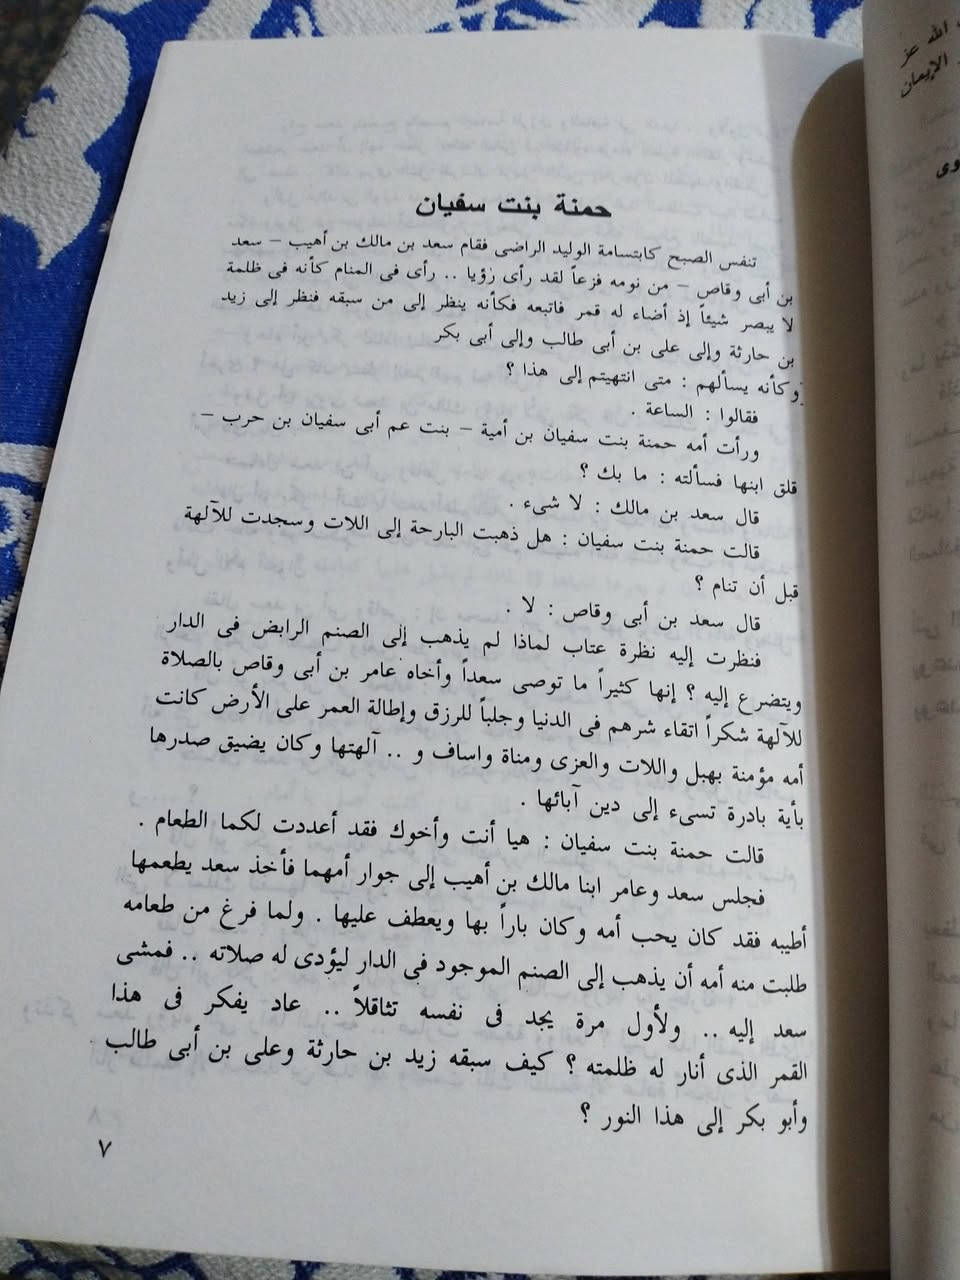 الله عز
الإيمان
وى
حمنة بنت سفيان
تنفس الصبح كابتسامة الوليد الراضى فقام سعد بن مالك بن أهيب – سعد
بن أبى وقاص – من نومه فزعاً لقد رأى رؤيا .. رأى فى المنام كأنه فى ظلمة
لا يبصر شيئاً إذ أضاء له قمر فاتبعه فكأنه ينظر إلى من سبقه فنظر إلى زيد
بن حارثة وإلى على بن أبى طالب وإلى أبى بكر
وكأنه يسألهم : متى انتهيتم إلى هذا ؟
فقالوا : الساعة .
ورأت أمه حمنة بنت سفيان بن أمية – بنت عم أبى سفيان بن حرب –
قلق ابنها فسألته : ما بك ؟
قال سعد بن مالك : لا شىء .
قالت حمنة بنت سفيان : هل ذهبت البارحة إلى اللات وسجدت للآلهة
قبل أن تنام ؟
قال سعد بن أبى وقاص : لا .
فنظرت إليه نظرة عتاب لماذا لم يذهب إلى الصنم الرابض فى الدار
ويتضرع إليه ؟ إنها كثيراً ما توصى سعداً وأخاه عامر بن أبى وقاص بالصلاة
للآلهة شكراً اتقاء شرهم فى الدنيا وجلباً للرزق وإطالة العمر على الأرض كانت
أمه مؤمنة بهبل واللات والعزى ومناة واساف و .. آلهتها وكان يضيق صدرها
بأية بادرة تسىء إلى دين آبائها .
قالت حمنة بنت سفيان : هيا أنت وأخوك فقد أعددت لكما الطعام .
فجلس سعد وعامر ابنا مالك بن أهيب إلى جوار أمهما فأخذ سعد يطعمها
أطيبه فقد كان يحب أمه وكان باراً بها ويعطف عليها . ولما فرغ من طعامه
طلبت منه أمه أن يذهب إلى الصنم الموجود فى الدار ليؤدى له صلاته .. فمشى
سعد إليه .. ولأول مرة يجد فى نفسه تثاقلاً .. عاد يفكر فى هذا
القمر الذى أنار له ظلمته ؟ كيف سبقه زيد بن حارثة وعلى بن أبى طالب
وأبو بكر إلى هذا النور ؟
٧